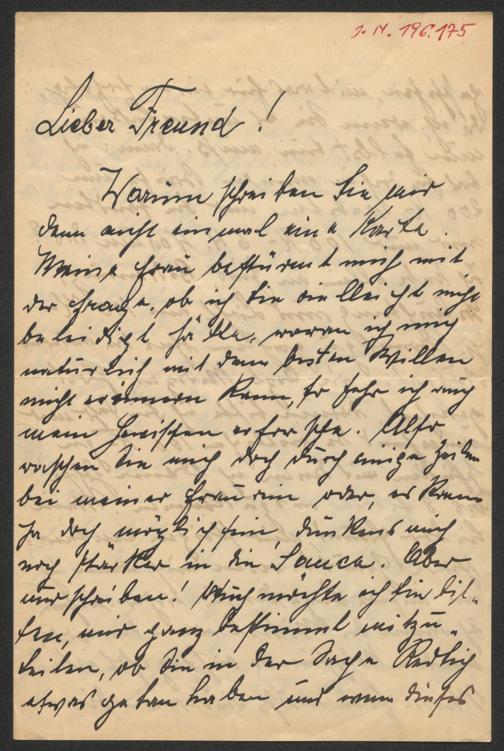 I. N. 196.175
Lieber Freund!
Warum schreiben Sie mir
denn nicht einmal eine Karte.
Meine Frau bestürmt mich mit
der Frage, ob ich Sie vielleicht nicht
beleidigt hätte, woran ich mich
natürlich mit dem besten Willen
nicht erinnern kann, so sehr ich auch
mein Gewissen erforsche. Also
waschen Sie mich doch durch einige Zeilen
bei meiner Frau rein oder, es kann
ja doch möglich sein, dunkens mich
noch stärker in die Sauce. Aber
nur schreiben! Auch möchte ich Sie bit-
ten, mir ganz bestimmt mitzu-
teilen, ob Sie in der Sache Redlich
etwas getan haben und wenn dieses